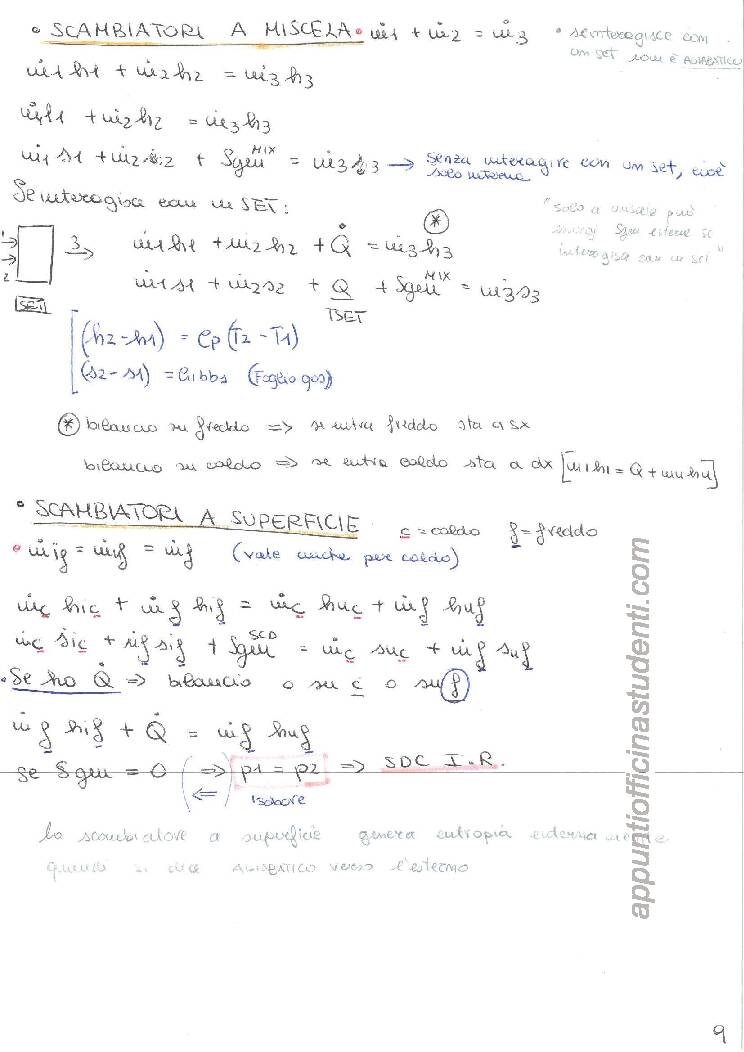 • SCAMBIATORI A MISCELA • ṁ1 + ṁ2 = ṁ3
• se interagisce con
un set non è ADIABATICO
ṁ1h1 + ṁ2h2 = ṁ3h3
ṁ1h1 + ṁ2h2 = ṁ3h3
ṁ1s1 + ṁ2s2 + Sgen^MIX = ṁ3s3 → senza interagire con un set, cioè
solo interna
Se interagisce con un SET:
"solo a
Sgen esterne se
interagisce con un set"
1 → 3 →
2 →
SET
ṁ1h1 + ṁ2h2 + Q̇ = ṁ3h3 (*)
ṁ1s1 + ṁ2s2 + Q/TSET + Sgen^MIX = ṁ3s3
[(h2-h1) = Cp(T2-T1)
(s2-s1) = Gibbs (Foglio gas)
(*) bilancio su freddo => se entra freddo sta a sx
bilancio su caldo => se entra caldo sta a dx [ṁ1h1 = Q + ṁuhu]
• SCAMBIATORI A SUPERFICIE c = caldo f = freddo
• ṁif = ṁuf = ṁf (vale anche per caldo)
ṁc hic + ṁf hif = ṁc huc + ṁf huf
ṁc sic + ṁf sif + Sgen^SCD = ṁc suc + ṁf suf
• Se ho Q̇ => bilancio o su c o su f
ṁf hif + Q̇ = ṁf huf
se Sgen = 0 (=>) p1 = p2 => SDC I.R.
(<=) Isobare
lo scambiatore a superficie genera entropia
quindi si dice ADIABATICO verso l'esterno
appuntiofficinastudenti.com
9